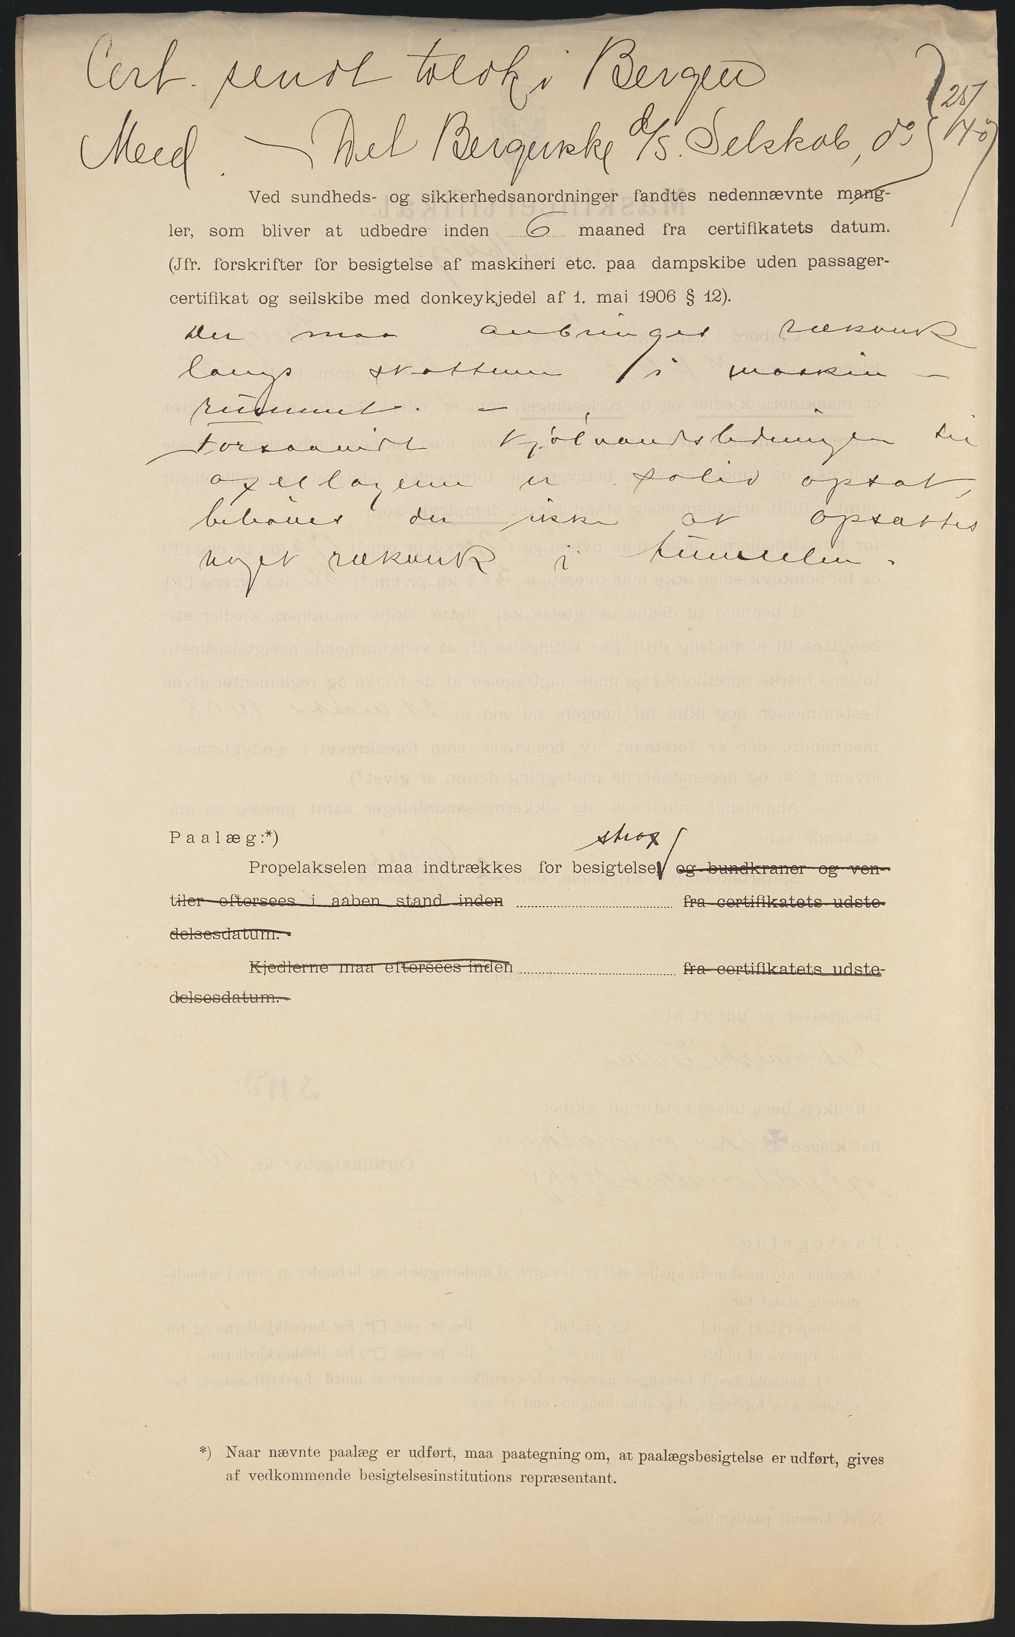 Cert. sendt toldk i Bergen
Med. — Det Bergenske d/s. Selskab, do
Ved sundheds- og sikkerhedsanordninger fandtes nedennævnte mang-
ler, som bliver at udbedre inden 6 maaned fra certifikatets datum.
(Jfr. forskrifter for besigtelse af maskineri etc. paa dampskibe uden passager-
certifikat og seilskibe med donkeykjedel af 1. mai 1906 § 12).
Der maa anbringes rækverk
langs skottene i maskin-
rummet. —
Forsaavidt kjølvandsledningen til
axellagerne er solid opsat,
behøves der ikke at opsættes
noget rækverk i tunnelen.
Paalæg:*)
strax
Propelakselen maa indtrækkes for besigtelse og bundkraner og ven-
tiler eftersees i aaben stand inden fra certifikatets udste-
delsesdatum.
Kjedlerne maa eftersees inden fra certifikatets udste-
delsesdatum.
*) Naar nævnte paalæg er udført, maa paategning om, at paalægsbesigtelse er udført, gives
af vedkommende besigtelsesinstitutions repræsentant.